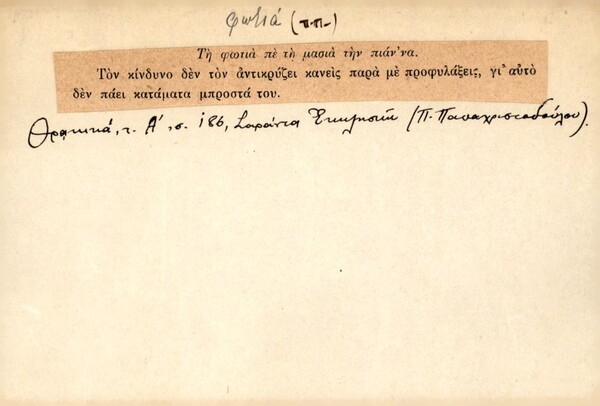 φωτιά (π.π.)
Τὴ φωτιὰ πὲ τὴ μασιὰ τὴν πιάν'να.
Τὸν κίνδυνο δὲν τὸν ἀντικρύζει κανεὶς παρὰ μὲ προφυλάξεις, γι' αὐτὸ
δὲν πάει κατάματα μπροστά του.
Θρακικά, τ. Α', σ. 186, Σαράντα Ἐκκλησιαί (Π. Παπαχριστοδούλου).